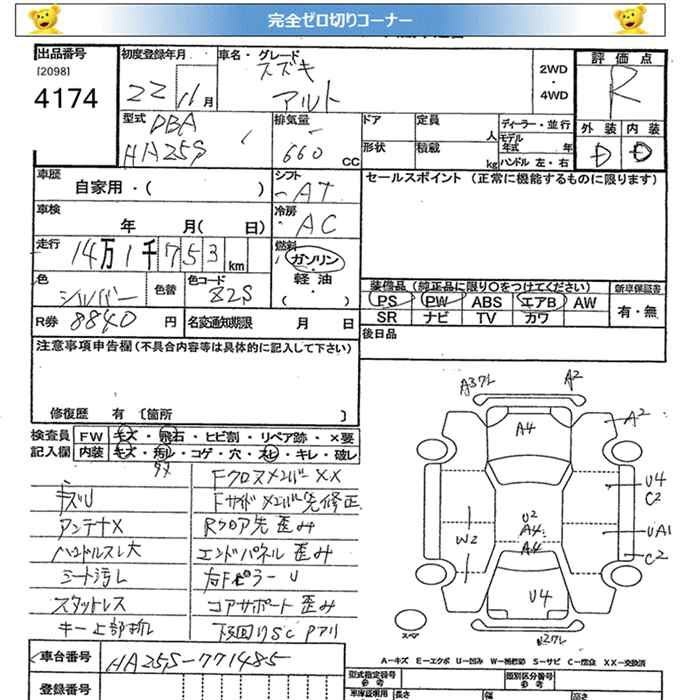 完全ゼロ切りコーナー
出品番号
[2098]
4174
初度登録年月
22 11月
車名・グレード
スズキ
アルト
2WD
・
4WD
評価点
R
外装 内装
D D
型式
DBA
HA25S
排気量
660 CC
ドア 定員 人
形状 積載 kg
ディーラー・並行
モデル年式 年
ハンドル 左・右
車歴
自家用・( )
シフト
AT
セールスポイント (正常に機能するものに限ります)
車検
年 月( 日)
冷房
AC
走行
14万1千753km
燃料
ガソリン
・
軽油
( ・ )
色
シルバー
色替
色コード
Z2S
装備品(純正品に限り〇をつけてください)
PS PW ABS エアB AW
SR ナビ TV カワ
新車保証書
有・無
R券 8840円
名変通知期限 月 日
後日品
注意事項申告欄(不具合内容等は具体的に記入して下さい)
修復歴 有 〔箇所 〕
検査員
記入欄
FW キズ・飛石・ヒビ割・リペア跡・×要
内装 キズ・汚レ・コゲ・穴・スレ・キレ・破レ
FクロスメンバーXX
キズU
Fサイドメンバー先修正
アンテナX
Rフロア先歪み
ハンドルスレ大
エンドパネル歪み
シート汚レ
右FピラーU
スタットレス
コアサポート歪み
キー上部折レ
下回りSC Pアリ
A3ワレ
A2
A2
A4
U4
C2
U2
A4
A4
W2
UA1
C2
U4
スペア
車台番号
HA25S-771485
登録番号
A-キズ E-エクボ U-凹み W-補修跡 S-サビ C-腐食 XX-交換済
型式指定番号
参考
類別区分番号
参考
車庫証明用
長さ
幅
高さ